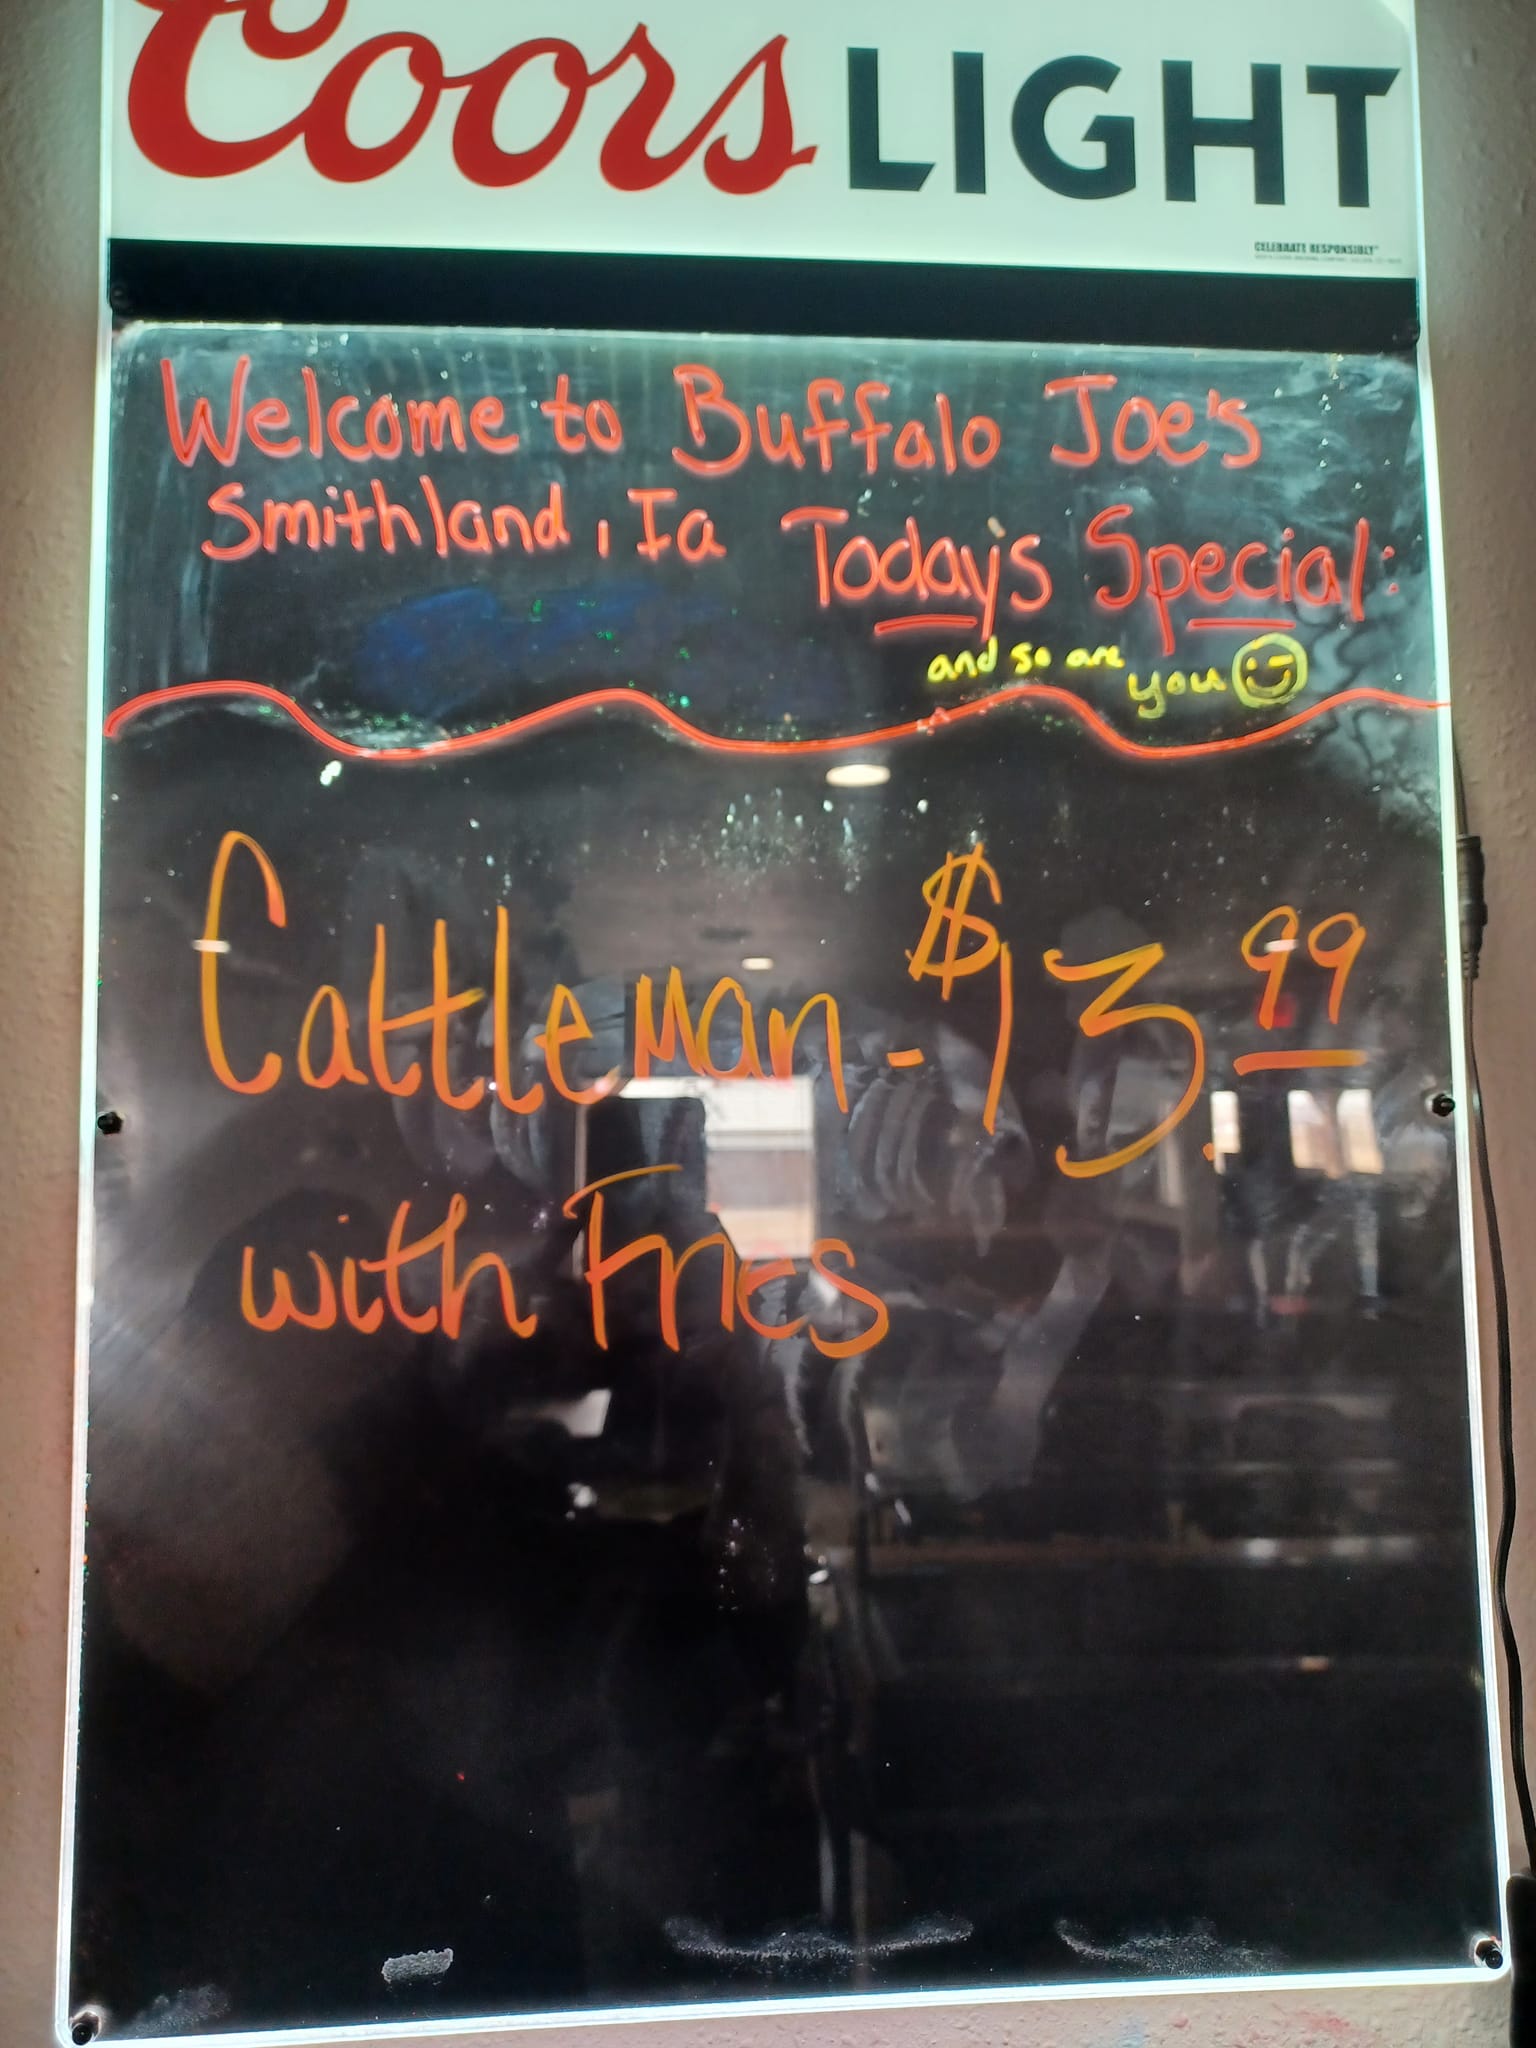 Coors LIGHT
CELEBRATE RESPONSIBLY
Welcome to Buffalo Joe's
Smithland, Ia Today's Special:
and so are you
Cattleman - $13.99
with Fries